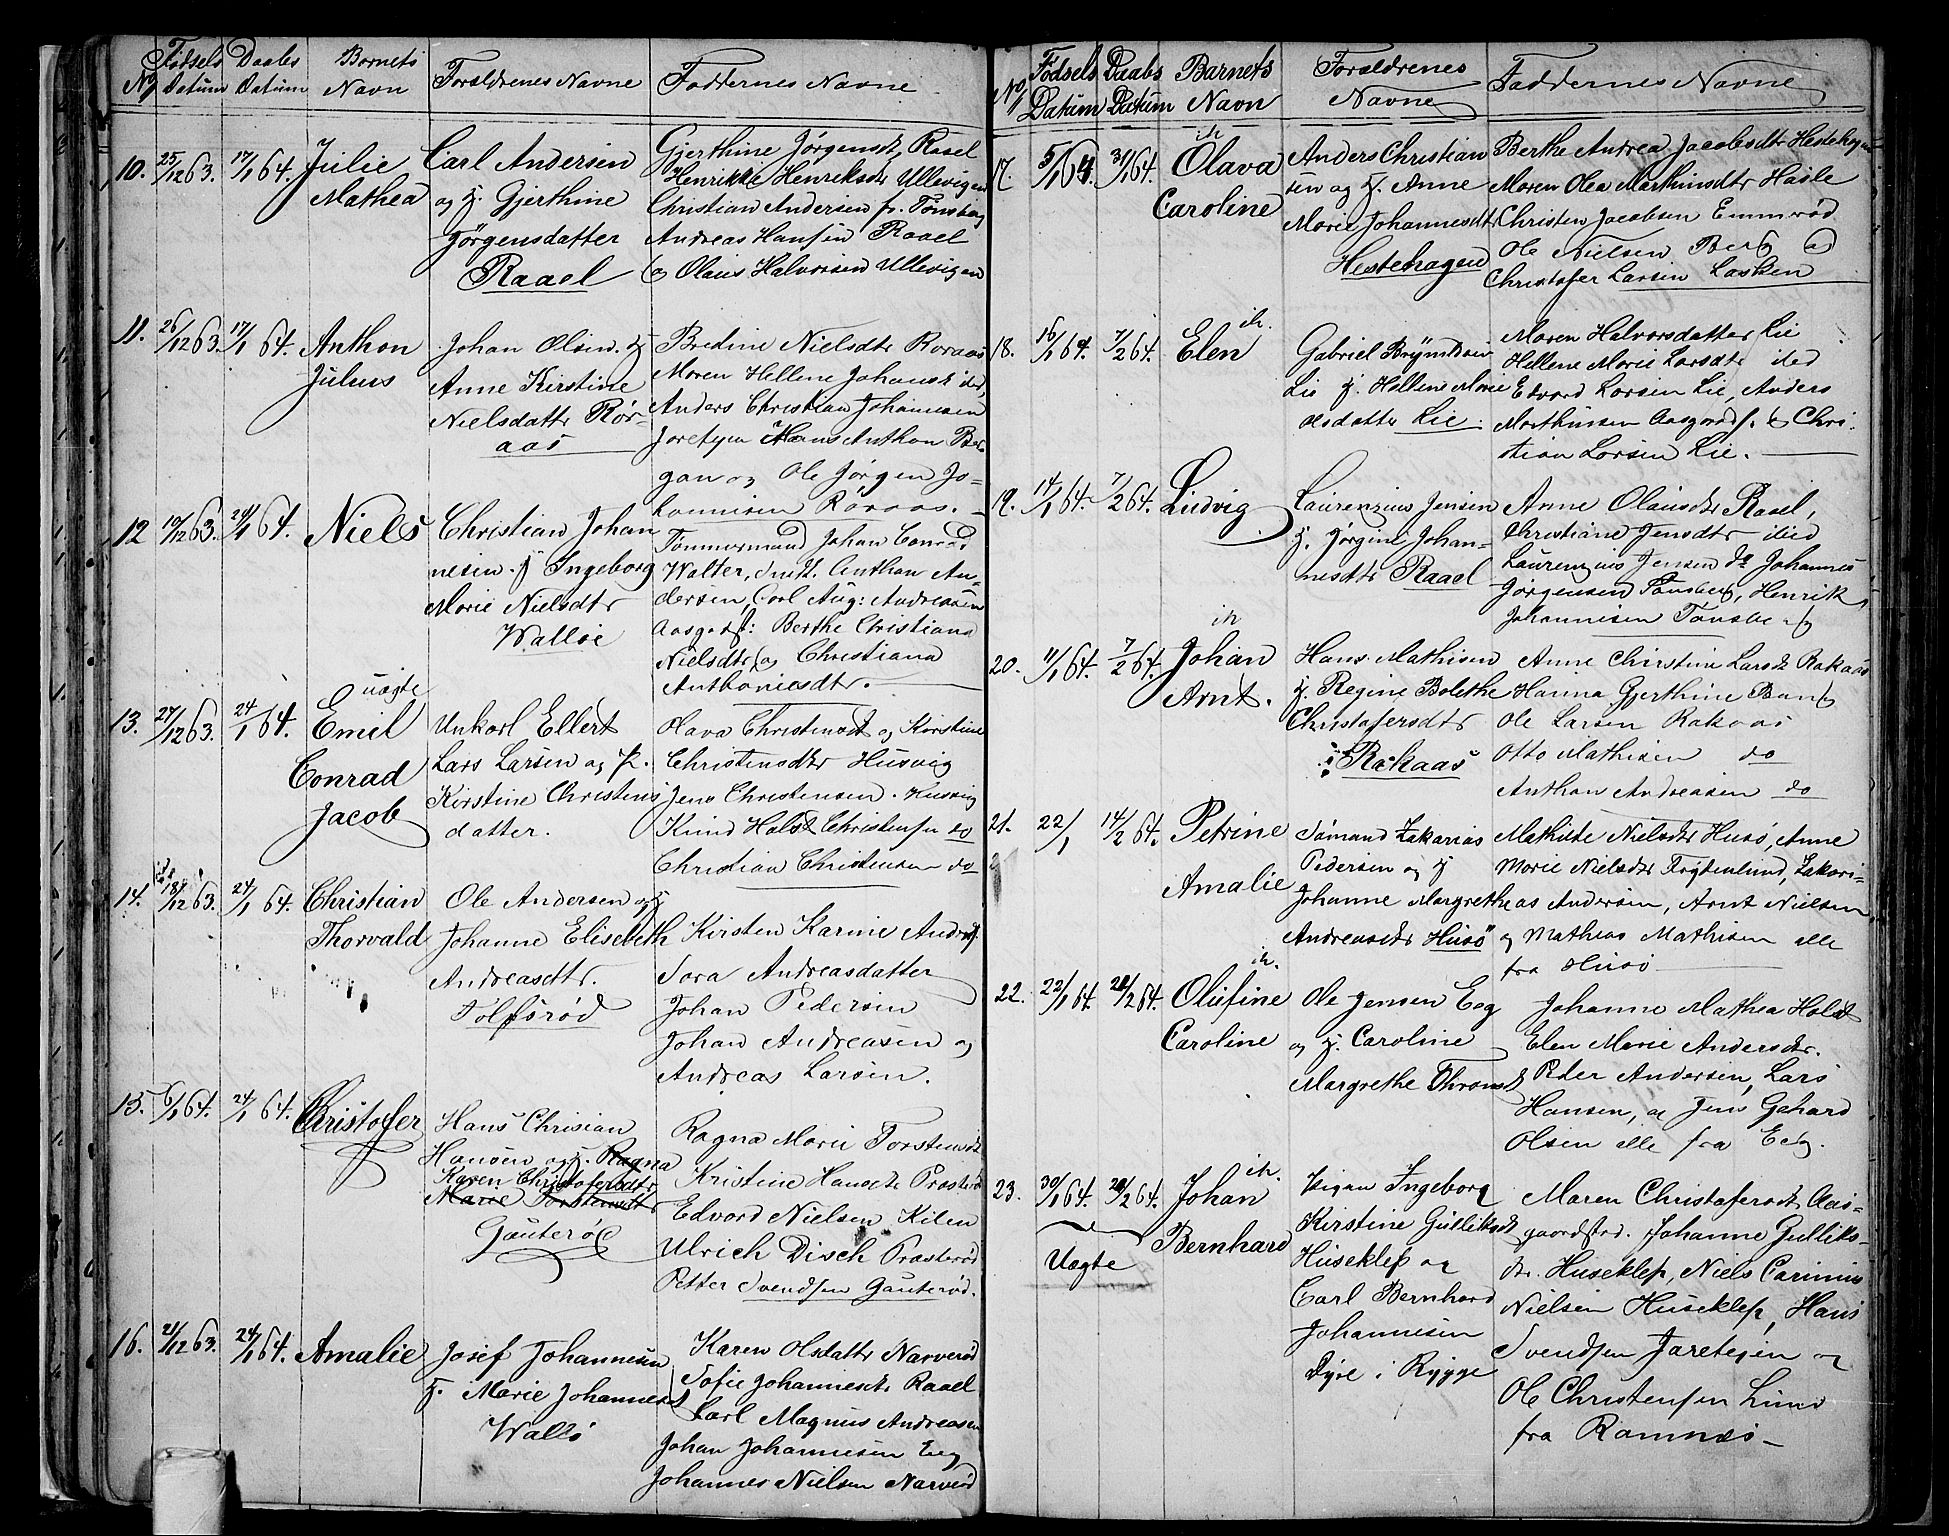 No Fødsels Datum Daabs Datum Barnets Navn Forældrenes Navne Faddernes Navne
10. 25/12 63. 17/1 64. Julie Mathea
Carl Andersen
og H. Gjerthine
Jørgensdatter
Raael
Gjerthine Jørgensdt, Raael
Henrikke Henriksdtr Ullevigen
Christian Andersen fr. Tønsberg
Andreas Hansen Raael
og Olaus Halvorsen Ullevigen
11. 26/12 63. 17/1 64. Anthon Julius
Johan Olsen. H
Anne Kirstine
Nielsdattr Rør-
aas
Bredine Nielsdtr Roraas
Maren Hellene Johansdt ibd,
Anders Christian Johannesen
Jaretejen Hans Anthon Ber-
gan og Ole Jørgen Jo-
hannesen Røraas.
12 10/12 63. 24/1 64. Niels
Christian Johan
nesen. H Ingeborg
Marie Nielsdtr
Walløe
Tømmermand Johan Conrad
Walter, Smitt. Anthon An-
dersen, Carl Aug: Andreasen
Aasgrdst: Berthe Christiana
Nielsdtr og Christiana
Anthoniesdtr.
13. 27/12 63. 24/1 64. uægte
Emil
Conrad
Jacob
Unkarl Ellert
Lars Larsen og P.
Kirstine Christens
datter.
Olava Christensdt og Kirstine
Christensdtr Husvig
Jens Christensen. Husvig
Knud Holst Christensen do
Christian Christensen do
14. 18/12 63. 24/1 64. Christian Thorvald
Ole Andersen og H
Johanne Elisebeth
Andreasdtr.
Tolfsrød
Kirsten Karine Andrdt.
Sara Andreasdatter
Johan Pedersen
Johan Andreasen og
Andreas Larsen.
15. 6/1 64. 24/1 64. Christofer
Hans Chrisian
Hansen og H. Ragna
Karen Christofersdtr
Marie Torstensdtr
Gauterød
Ragna Marie Torstensdt
Kristine Hansdt Præsterød
Edvard Nielsen Kilen
Ulrich Disch Præsterød
Petter Svendsen Gauterød.
16. 21/12 63. 24/1 64. Amalie
Josef Johannesen
H. Marie Johannesdt
Wallø
Karen Olsdattr Narverød
Sofie Johannesdt Raael
Carl Magnus Andreasen
Johan Johannesen Eeg
Johannes Nielsen Narverød
No Fødsels Datum Daabs Datum Barnets Navn Forældrenes Navne Faddernes Navne
17. 5/1 64 31/1 64. Olava Caroline
Anders Christian
sen og H. Anne
Marie Johannesdtr
Hestehagen
Berthe Andrea Jacobsdtr Hestehagen
Maren Olea Mathinsdtr Hasle
Christen Jacobsen Emmerød
Ole Nielsen Berg og
Christofer Larsen Løsken
18. 16/1 64. 7/2 64. Elen
Gabriel Brynildsen
Lie H. Hellene Marie
dsdatter Lie.
Maren Halvorsdatter Lie
Hellene Marie Larsdtr ibd
Edvard Larsen Lie, Anders
Marthinsen Aasgrdst. & Chri-
stian Larsen Lie.
19. 14/1 64. 7/2 64. Ludvig
Laurenzius Jensen
H. Jørgine Johan-
nesdtr Raael
Anne Olausdtr Raael,
Christiane Jensdtr ibid
Laurenzius Jensen do Johannes
Jørgensen Tønsberg, Henrik
Johannesen Tønsberg
20. 11/1 64. 7/2 64. Johan Arnt.
Hans Mathisen
H. Regine Bolethe
Christofersdtr
Rakaas
Anne Chirstine Larsdt Rakaas
Hanna Gjerthine Berg
Ole Larsen Rakaas
Otto Mathisen do
Anthon Andreasen do
21. 22/1 14/2 64. Petrine Amalie
Sømund Zakarias
Pedersen og H
Johanne Margrethe
Andreasdtr Husø
Mathilde Nielsdtr Husø, Anne
Marie Nielsdtr Frytenlund, Zakari-
as Andersen, Arnt Nielsen
og Mathias Mathisen alle
fra Husø
22. 22/1 64. 28/2 64. Olufine Caroline
Ole Jensen Eeg
og H. Caroline
Margrethe Thronsdt
Johanne Mathea Holst
Elen Marie Andersdtr.
Peder Andersen, Lars
Hansen, og Jens Gehard
Olsen alle fra Eeg.
23. 30/1 64. 28/2 64. Johan Bernhard
Uægte
Pigen Ingeborg
Kirstine Gulliksdt
Huseklep og
Carl Bernhard
Johannesen
Dyre i Rygge
Maren Christofersdt. Aas-
gaardstrd. Johanne Gulliks-
dtr. Huseklep, Niels Carinius
Nielsen Huseklep, Hans
Svendsen Jaretejen og
Ole Christensen Lund
fra Ramnæs